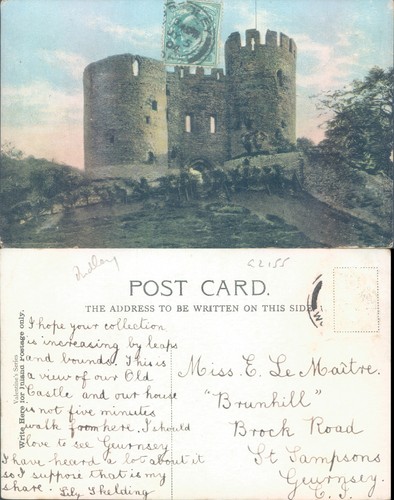 Dudley
C2155
POST CARD.
THE ADDRESS TO BE WRITTEN ON THIS SIDE
Valentine's Series
Write Here for Inland Postage only.
I hope your collection
is increasing by leaps
and bounds. This is
a view of our Old
Castle and our house
is not five minutes
walk from here. I should
love to see Geurnsey
I have heard a lot about it
so I suppose that is my
share. Lily Skelding
Miss. E. Le Maître.
"Brunhill"
Brock Road
St Sampsons
Geurnsey.
C. I.